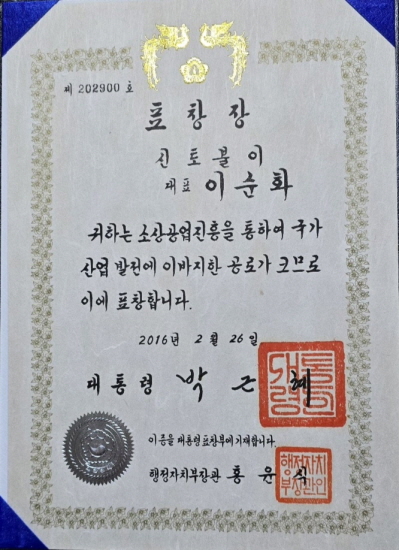 제 202900 호
표창장
신토불이
대표 이순화
귀하는 소상공업진흥을 통하여 국가
산업 발전에 이바지한 공로가 크므로
이에 표창합니다.
2016년 2 월 26 일
대통령 박 근 혜
대통령의
이 증을 대통령표창부에 기재합니다.
행정자치부장관 홍 윤 식
행정자치부장관인